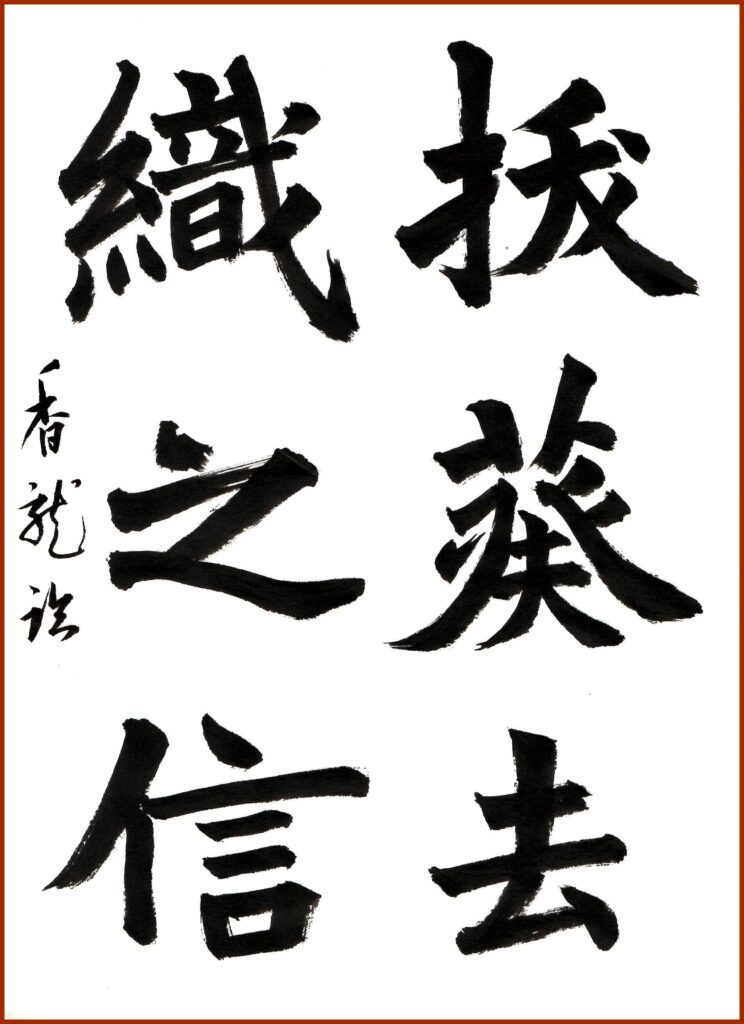 拔葵去
織之信
香龍臨